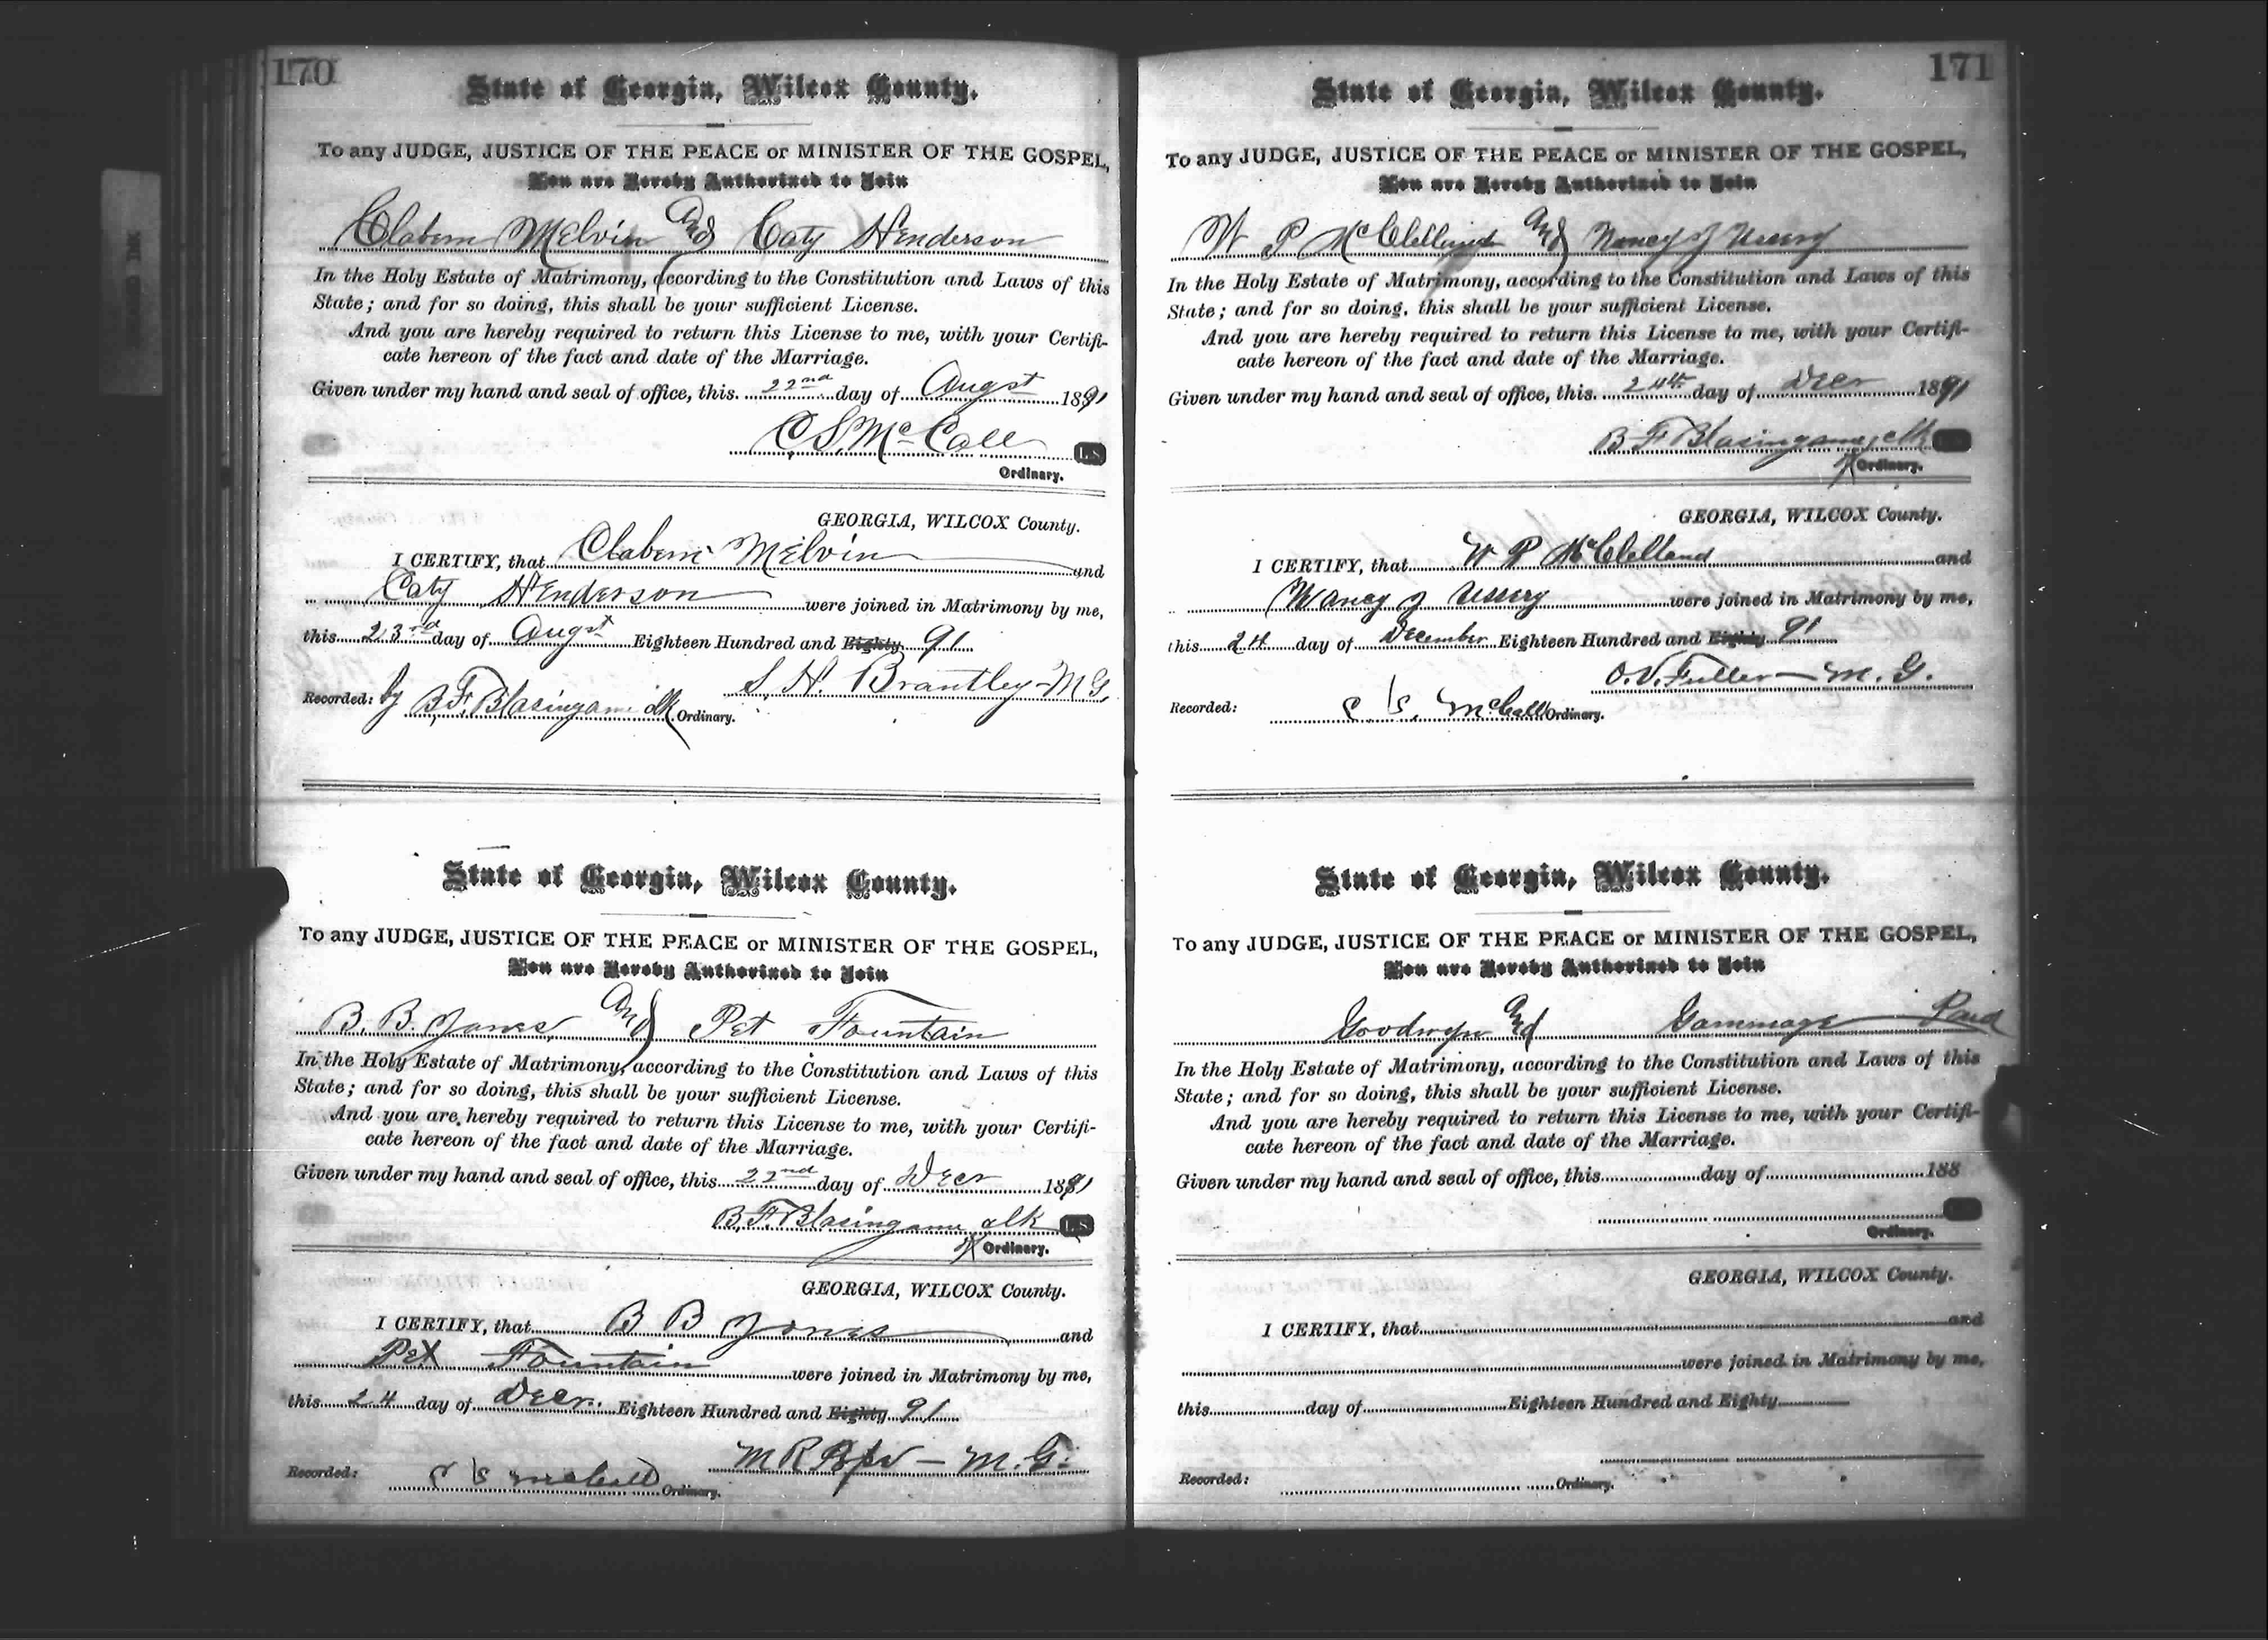 170
State of Georgia, Wilcox County.
To any JUDGE, JUSTICE OF THE PEACE or MINISTER OF THE GOSPEL,
You are Hereby Authorized to Join
Claborn Melvin and Caty Henderson
In the Holy Estate of Matrimony, according to the Constitution and Laws of this
State; and for so doing, this shall be your sufficient License.
And you are hereby required to return this License to me, with your Certifi-
cate hereon of the fact and date of the Marriage.
Given under my hand and seal of office, this 22nd day of Augst 1891
C S McCall L.S
Ordinary.
GEORGIA, WILCOX County.
I CERTIFY, that Claborn Melvin and
Caty Henderson were joined in Matrimony by me,
this 23rd day of Augst Eighteen Hundred and Eighty 91
S. H. Brantley - M G
Recorded: by B. F. Blasingame clk Ordinary.
State of Georgia, Wilcox County.
To any JUDGE, JUSTICE OF THE PEACE or MINISTER OF THE GOSPEL,
You are Hereby Authorized to Join
B. B. Jones and Pet Fountain
In the Holy Estate of Matrimony, according to the Constitution and Laws of this
State; and for so doing, this shall be your sufficient License.
And you are hereby required to return this License to me, with your Certifi-
cate hereon of the fact and date of the Marriage.
Given under my hand and seal of office, this 22nd day of Decr 1891
B. F. Blasingame clk L.S
Ordinary.
GEORGIA, WILCOX County.
I CERTIFY, that B B Jones and
Pet Fountain were joined in Matrimony by me,
this 24 day of Decr. Eighteen Hundred and Eighty 91
M R - M. G.
Recorded: C S McCall Ordinary.
171
State of Georgia, Wilcox County.
To any JUDGE, JUSTICE OF THE PEACE or MINISTER OF THE GOSPEL,
You are Hereby Authorized to Join
W P McClelland and Nancy J Ussery
In the Holy Estate of Matrimony, according to the Constitution and Laws of this
State; and for so doing, this shall be your sufficient License.
And you are hereby required to return this License to me, with your Certifi-
cate hereon of the fact and date of the Marriage.
Given under my hand and seal of office, this 24th day of Decr 1891
B F Blasingame, clk
Ordinary.
GEORGIA, WILCOX County.
I CERTIFY, that W P McClelland and
Nancy J Ussery were joined in Matrimony by me,
this 24 day of December Eighteen Hundred and Eighty 91
O. V. Fuller - M. G.
Recorded: C. S. McCall Ordinary.
State of Georgia, Wilcox County.
To any JUDGE, JUSTICE OF THE PEACE or MINISTER OF THE GOSPEL,
You are Hereby Authorized to Join
Goodwyn and Gammage Paid
In the Holy Estate of Matrimony, according to the Constitution and Laws of this
State; and for so doing, this shall be your sufficient License.
And you are hereby required to return this License to me, with your Certifi-
cate hereon of the fact and date of the Marriage.
Given under my hand and seal of office, this day of 188
Ordinary.
GEORGIA, WILCOX County.
I CERTIFY, that and
were joined in Matrimony by me,
this day of Eighteen Hundred and Eighty
Recorded: Ordinary.